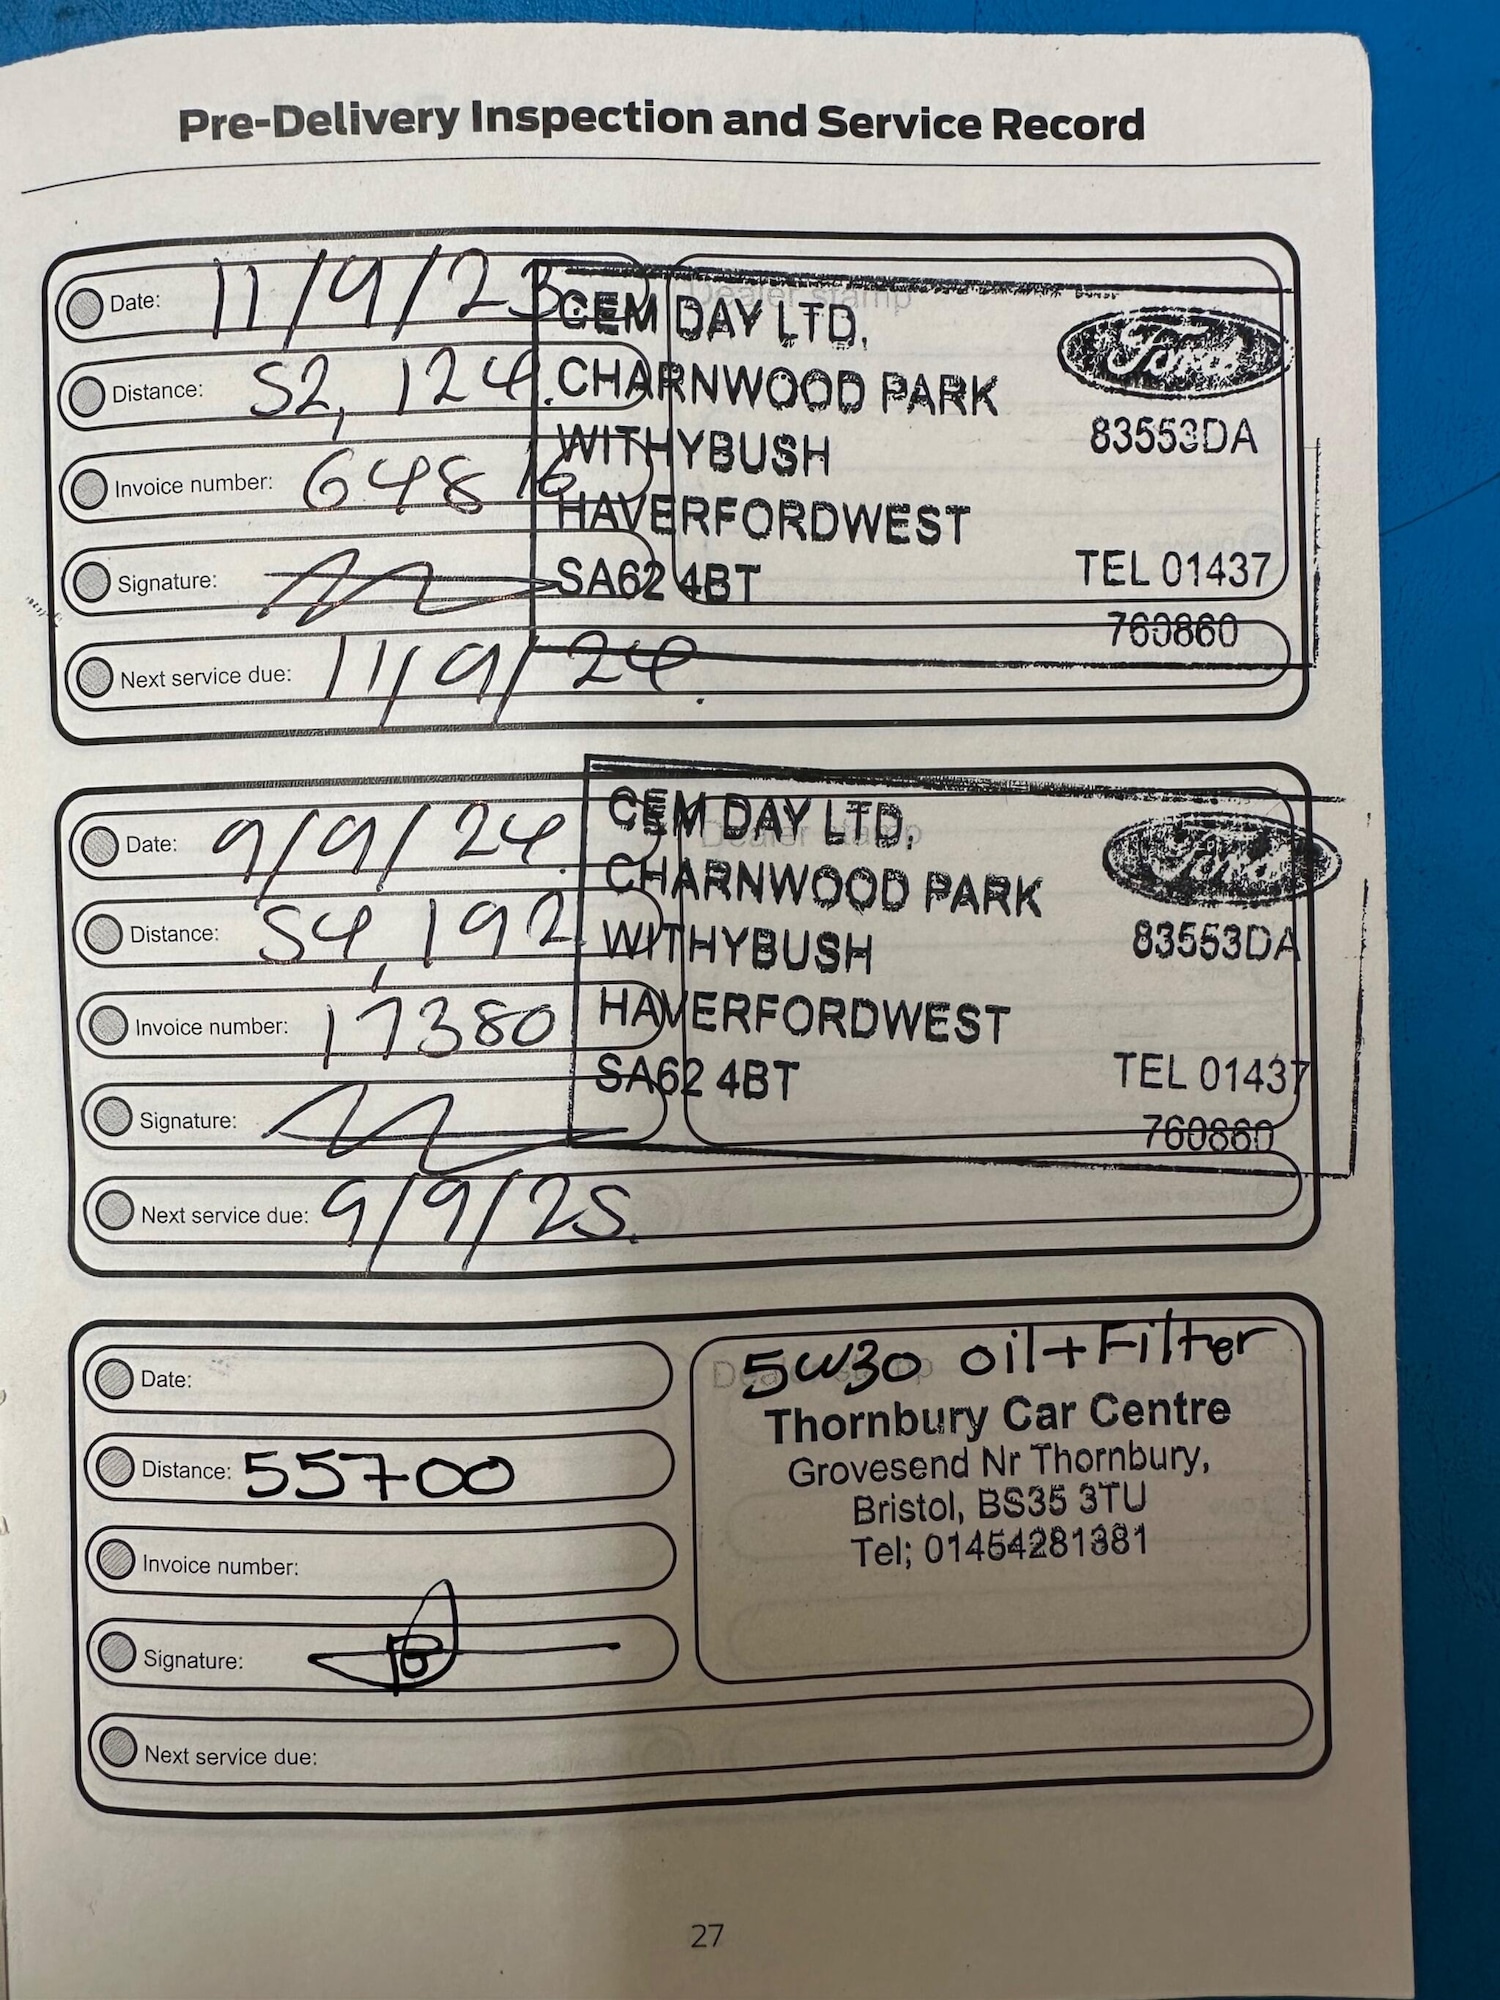 Pre-Delivery Inspection and Service Record
Date: 11/9/23
Dealer stamp
Distance: 52,124.
Invoice number: 64816
Signature:
Next service due: 11/9/24.
CEM DAY LTD.
CHARNWOOD PARK
WITHYBUSH
HAVERFORDWEST
SA62 4BT
Ford
83553DA
TEL 01437
760860
Date: 9/9/24.
Dealer stamp
Distance: 54,192
Invoice number: 17380
Signature:
Next service due: 9/9/25.
CEM DAY LTD.
CHARNWOOD PARK
WITHYBUSH
HAVERFORDWEST
SA62 4BT
Ford
83553DA
TEL 01437
760860
Date:
Distance: 55700
Invoice number:
Signature:
Next service due:
Dealer stamp
5W30 oil+Filter
Thornbury Car Centre
Grovesend Nr Thornbury,
Bristol, BS35 3TU
Tel; 01454281381
27